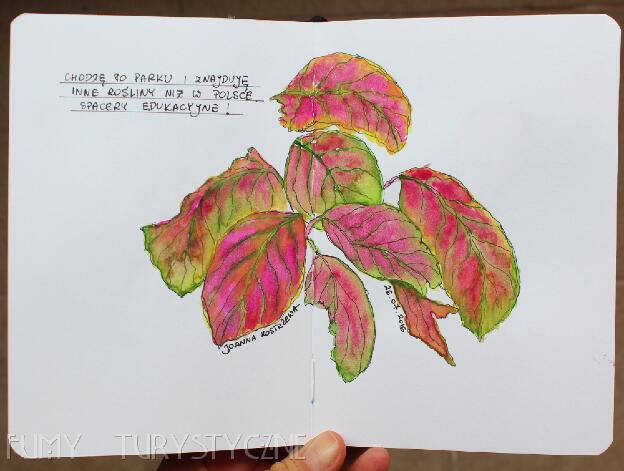 CHODZĘ PO PARKU I ZNAJDUJĘ
INNE ROŚLINY NIŻ W POLSCE
SPACERY EDUKACYJNE!
JOANNA KOSTRZEWA
26.07.2016
FUMY TURYSTYCZNE